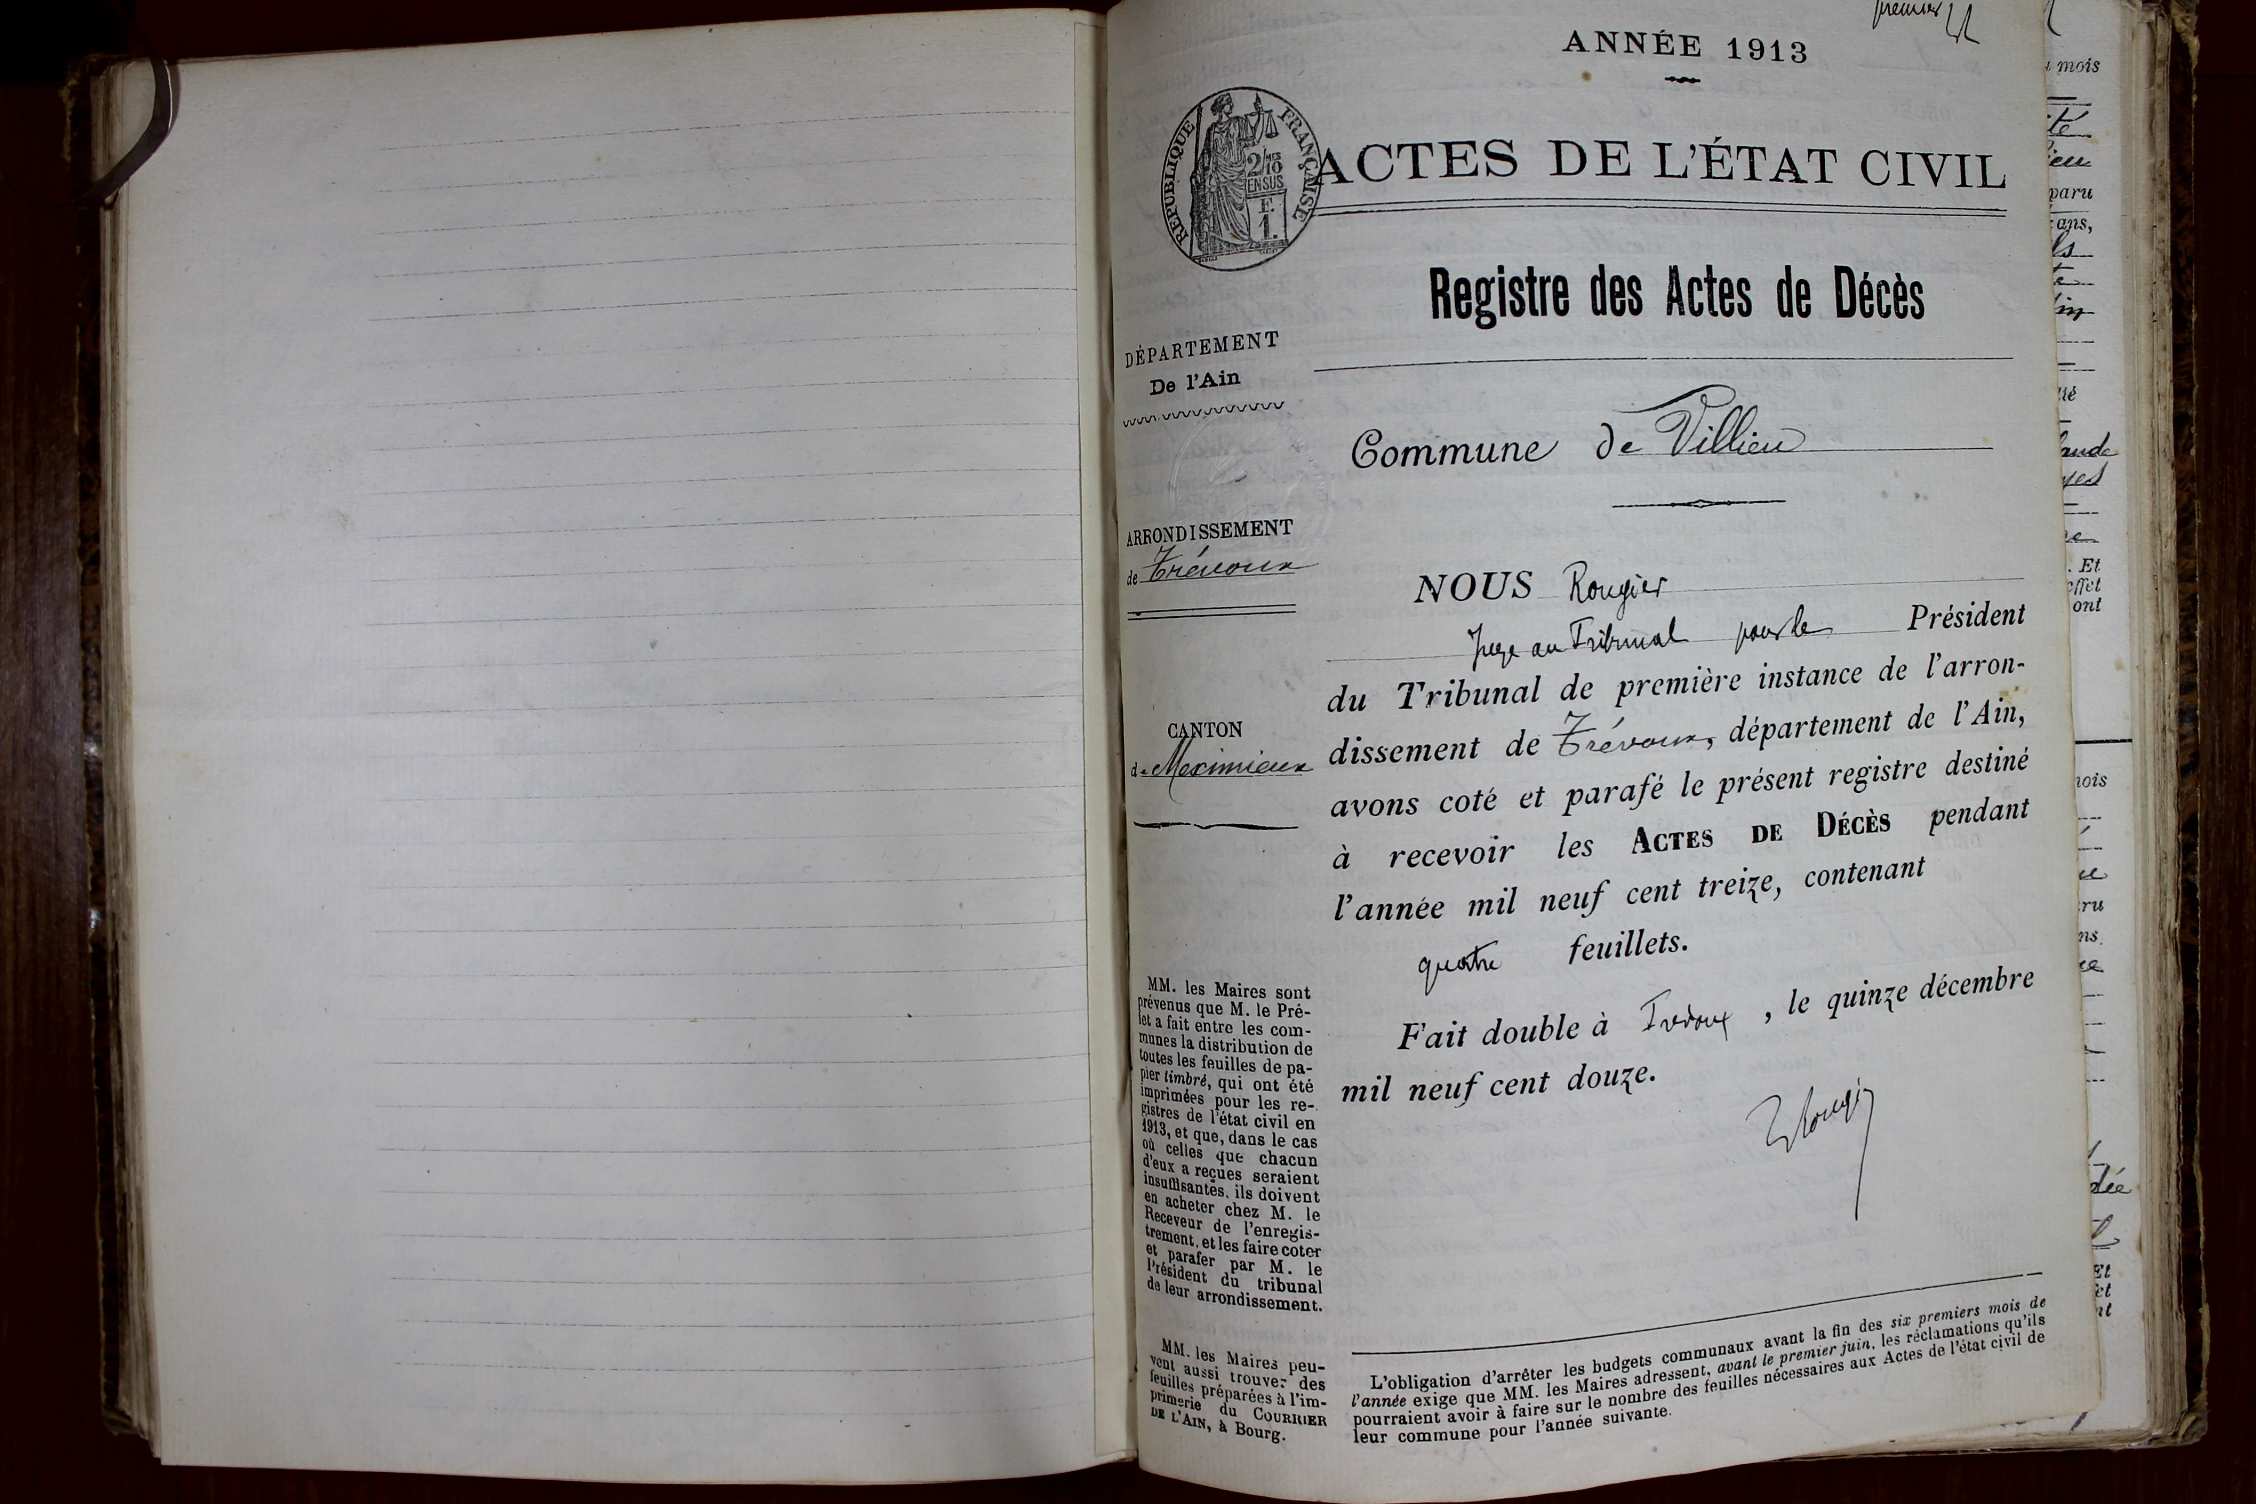 premier
ANNÉE 1913
RÉPUBLIQUE FRANÇAISE
2/10 MES
EN SUS
E
1.
ACTES DE L'ÉTAT CIVIL
Registre des Actes de Décès
DÉPARTEMENT
De l'Ain
Commune de Villieu
ARRONDISSEMENT
de Trévoux
CANTON
de Meximieux
NOUS Rougier
Juge au Tribunal pour le Président
du Tribunal de première instance de l'arron-
dissement de Trévoux, département de l'Ain,
avons coté et parafé le présent registre destiné
à recevoir les ACTES DE DÉCÈS pendant
l'année mil neuf cent treize, contenant
quatre feuillets.
Fait double à Trévoux, le quinze décembre
mil neuf cent douze.
Rougier
MM. les Maires sont
prévenus que M. le Pré-
fet a fait entre les com-
munes la distribution de
toutes les feuilles de pa-
pier timbré, qui ont été
imprimées pour les re-
gistres de l'état civil en
1913, et que, dans le cas
où celles que chacun
d'eux a reçues seraient
insuffisantes, ils doivent
en acheter chez M. le
Receveur de l'enregis-
trement, et les faire coter
et parafer par M. le
Président du tribunal
de leur arrondissement.
MM. les Maires peu-
vent aussi trouver des
feuilles préparées à l'im-
primerie du COURRIER
DE L'AIN, à Bourg.
L'obligation d'arrêter les budgets communaux avant la fin des six premiers mois de
l'année exige que MM. les Maires adressent, avant le premier juin, les réclamations qu'ils
pourraient avoir à faire sur le nombre des feuilles nécessaires aux Actes de l'état civil de
leur commune pour l'année suivante.
mois
paru
ans,
. Et
effet
ont